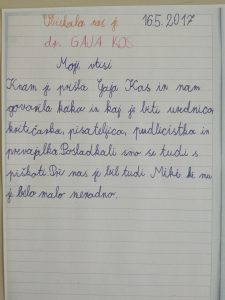 Obiskala nas je 16.5.2017
dr. GAJA KOS
Moji vtisi
K nam je prišla Gaja Kos in nam
govorila kako in kaj je biti urednica,
kritičarka, pisateljica, publicistka in
prevajalka. Posladkali smo se tudi s
piškoti. Pri nas je bil tudi Miki ki mu
je bilo malo nerodno.